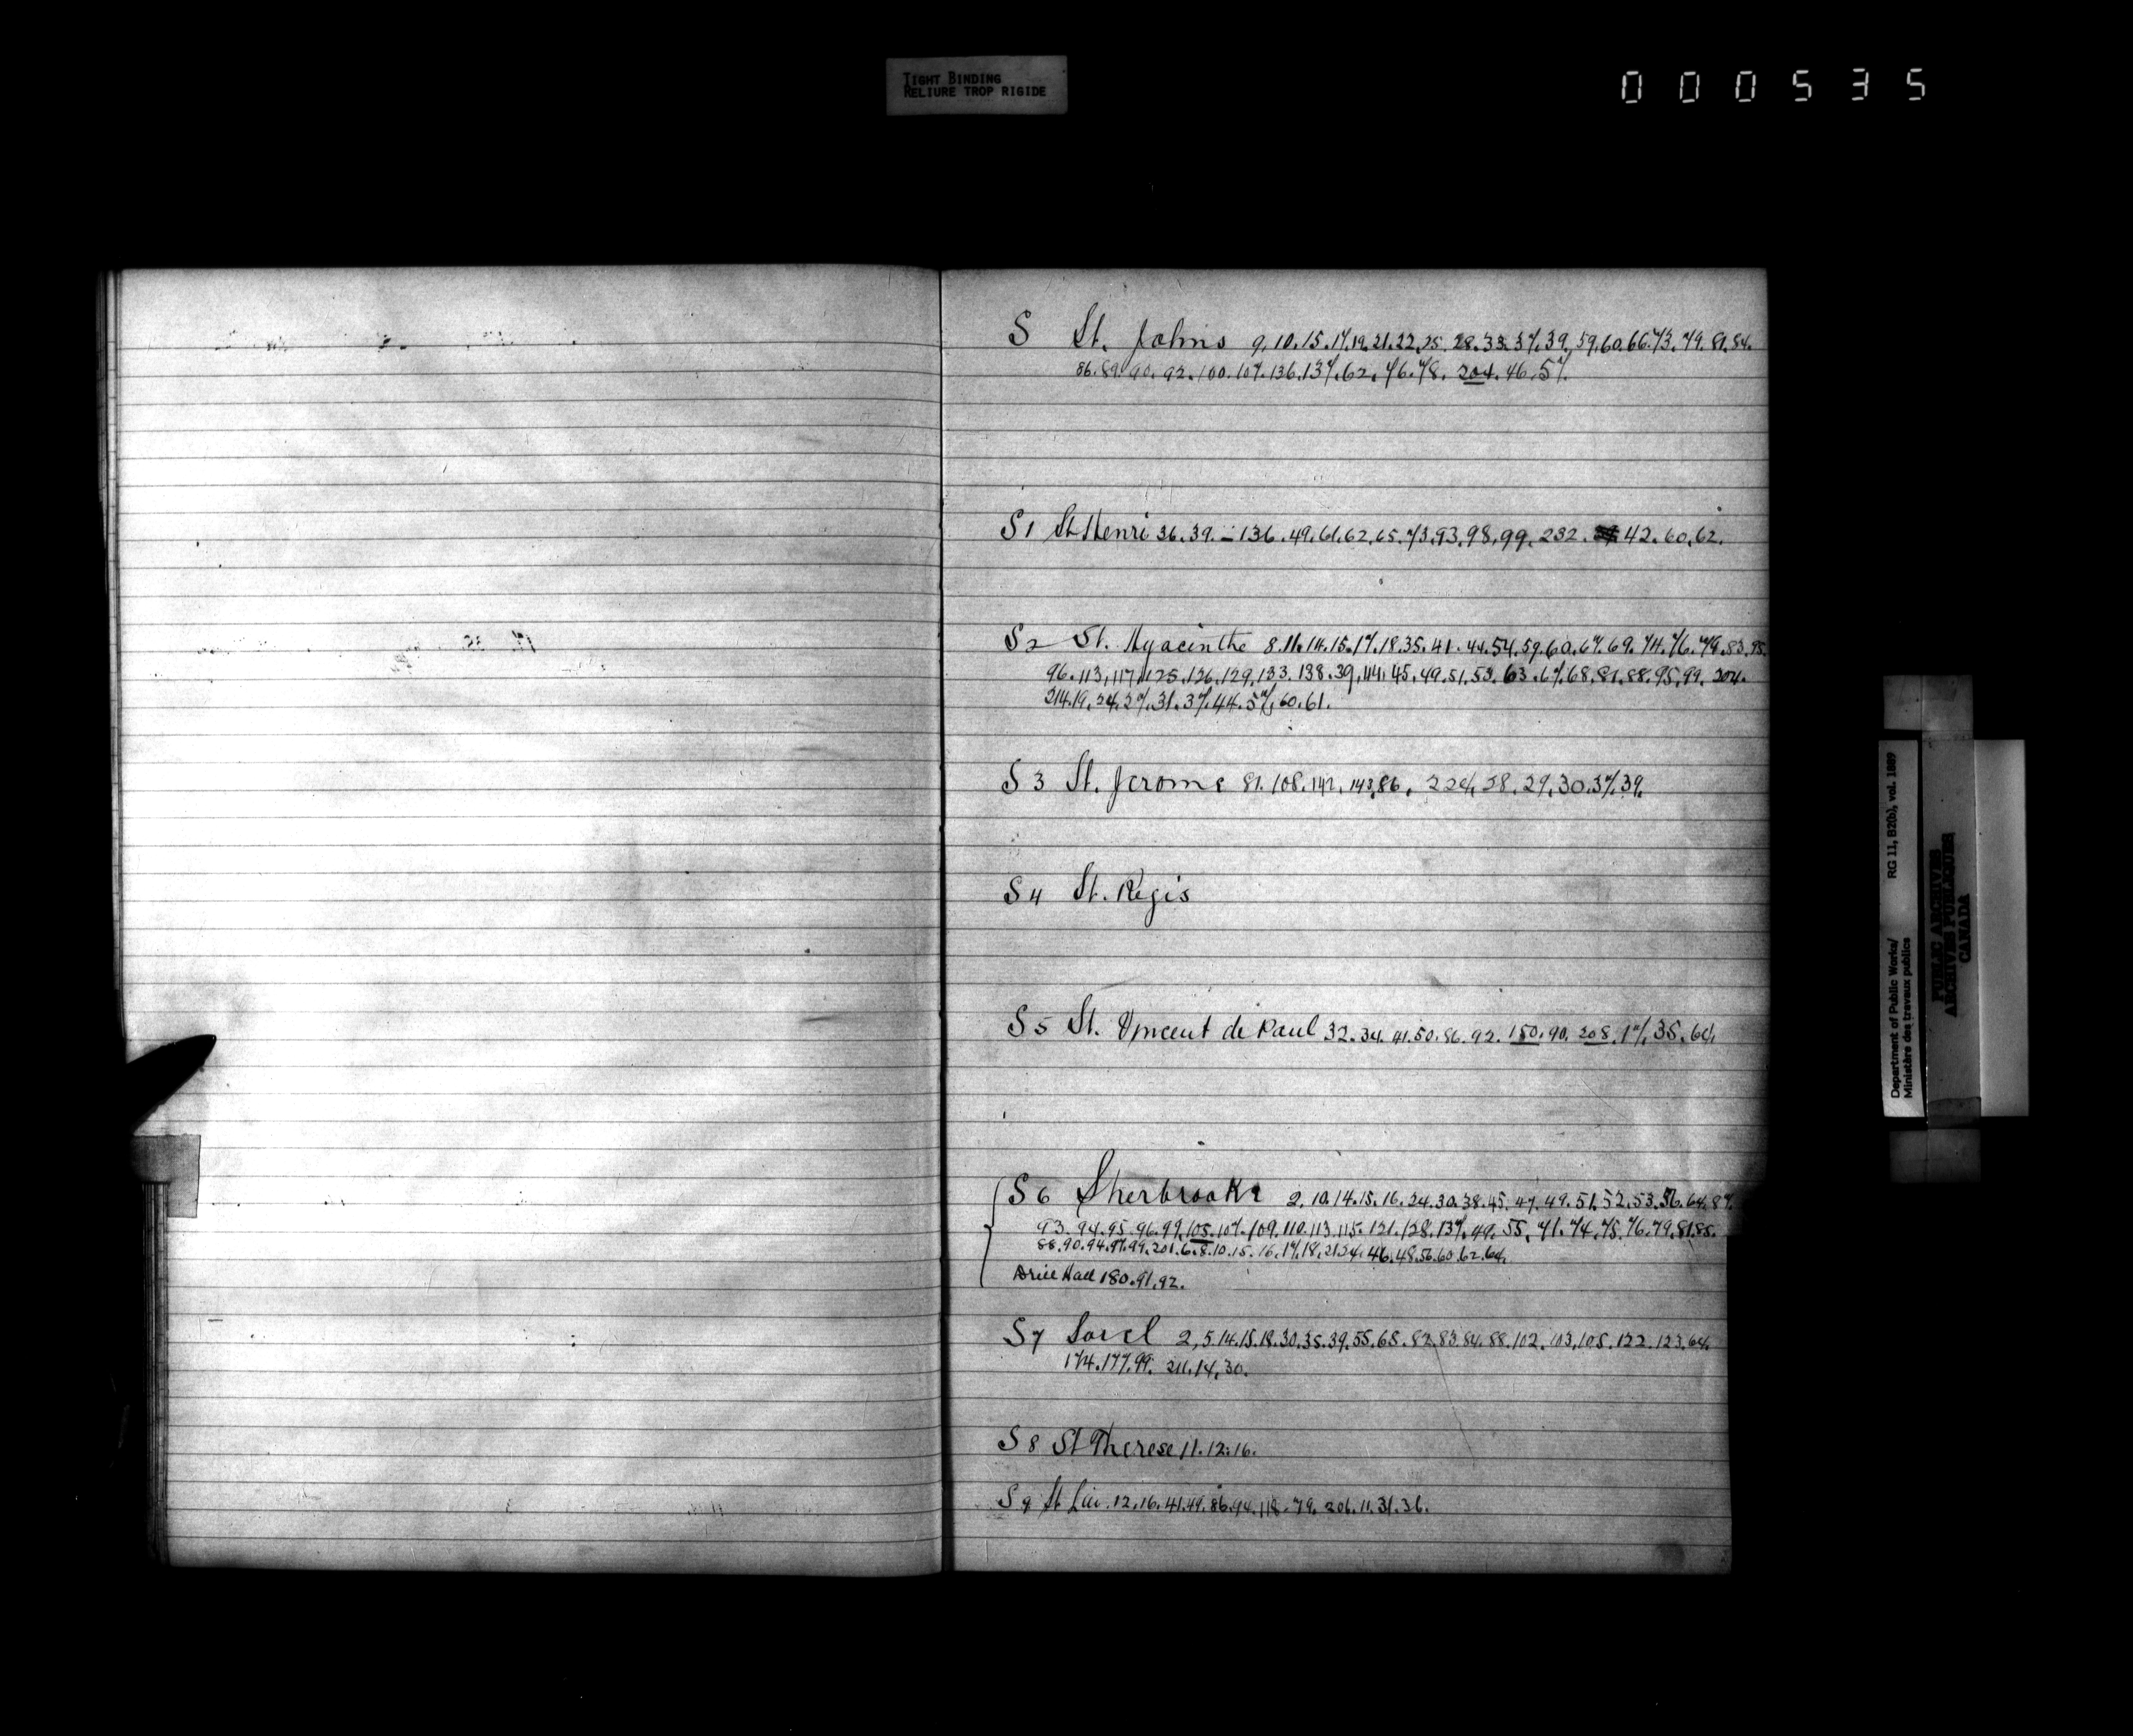 TIGHT BINDING
RELIURE TROP RIGIDE
000535
S St. Johns 9.10.15.17.19.21.22.25.28.33.37.39.59.60.66.73.79.81.84.
86.89.90.92.100.107.136.137.62.76.78.204.46.57.
S1 St Henri 36.39.-136.49.61.62.65.73.93.98.99.232. 42.60.62.
S2 St. Hyacinthe 8.11.14.15.17.18.35.41.44.54.59.60.67.69.74.76.79.83.95.
96.113.117.125.126.129.133.138.39.141.45.49.51.53.63.67.68.81.88.95.99.204.
214.19.24.27.31.37.44.57.60.61.
S3 St. Jerome 81.108.142.143.86. 28.29.30.37.39.
S4 St. Regis
S5 St. Vincent de Paul 32.34.41.50.86.92.180.90.208.17.35.64.
S6 Sherbrooke 2.10.14.15.16.24.30.38.45.47.49.51.52.53.56.64.87.
93.94.95.96.99.105.107.109.110.113.115.121.128.137.49.55.71.74.75.76.79.81.85.
88.90.94.97.99.201.6.8.10.15.16.17.18.21.24.46.48.56.60.62.64.
Drill Hall 180.91.92.
S7 Sorel 2,5.14.15.18.30.35.39.55.68.82.83.84.88.102.103.105.122.123.64.
174.177.99.211.14.30.
S8 St Therese 11.12.16.
S9 St Lin. 12.16.41.49.86.94.118.79.206.11.31.36.
Department of Public Works/
Ministère des travaux publics
RG 11, B2(b), vol. 1889
PUBLIC ARCHIVES
ARCHIVES PUBLIQUES
CANADA